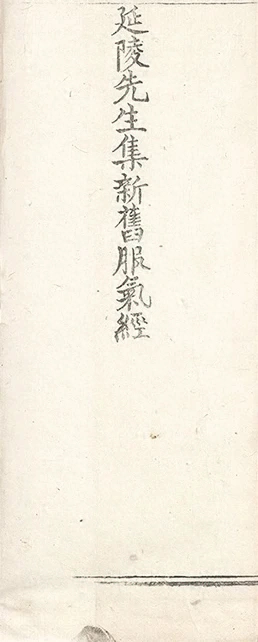 延陵先生集新舊服氣經